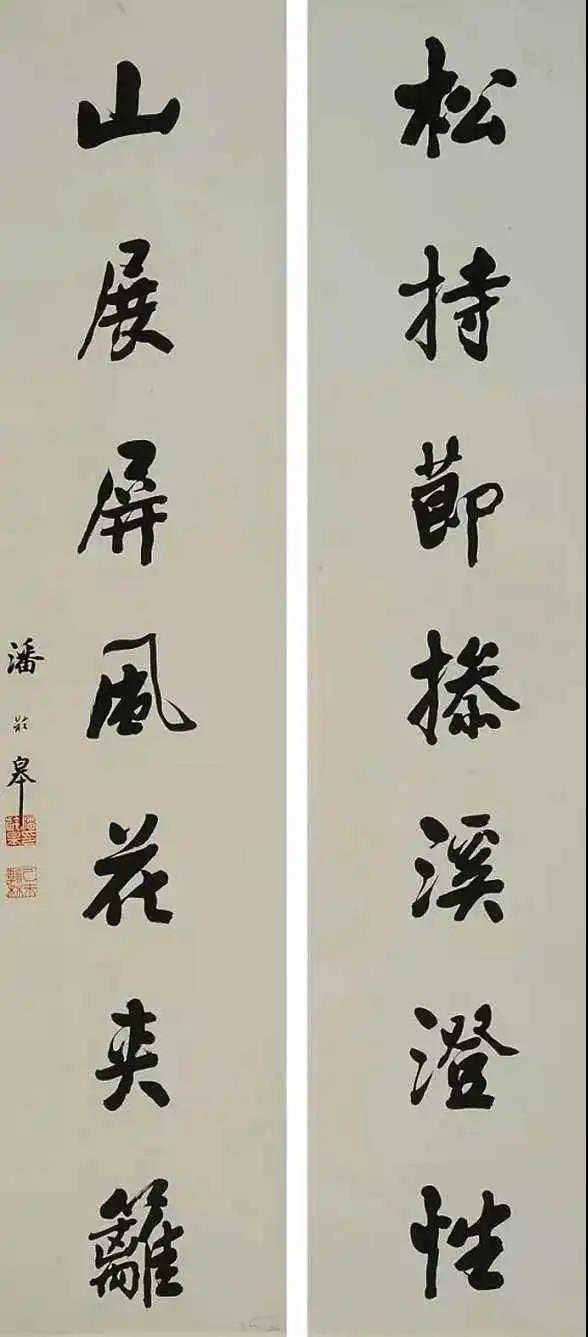 松持節操溪澄性
山展屏風花夾籬
潘齡皋